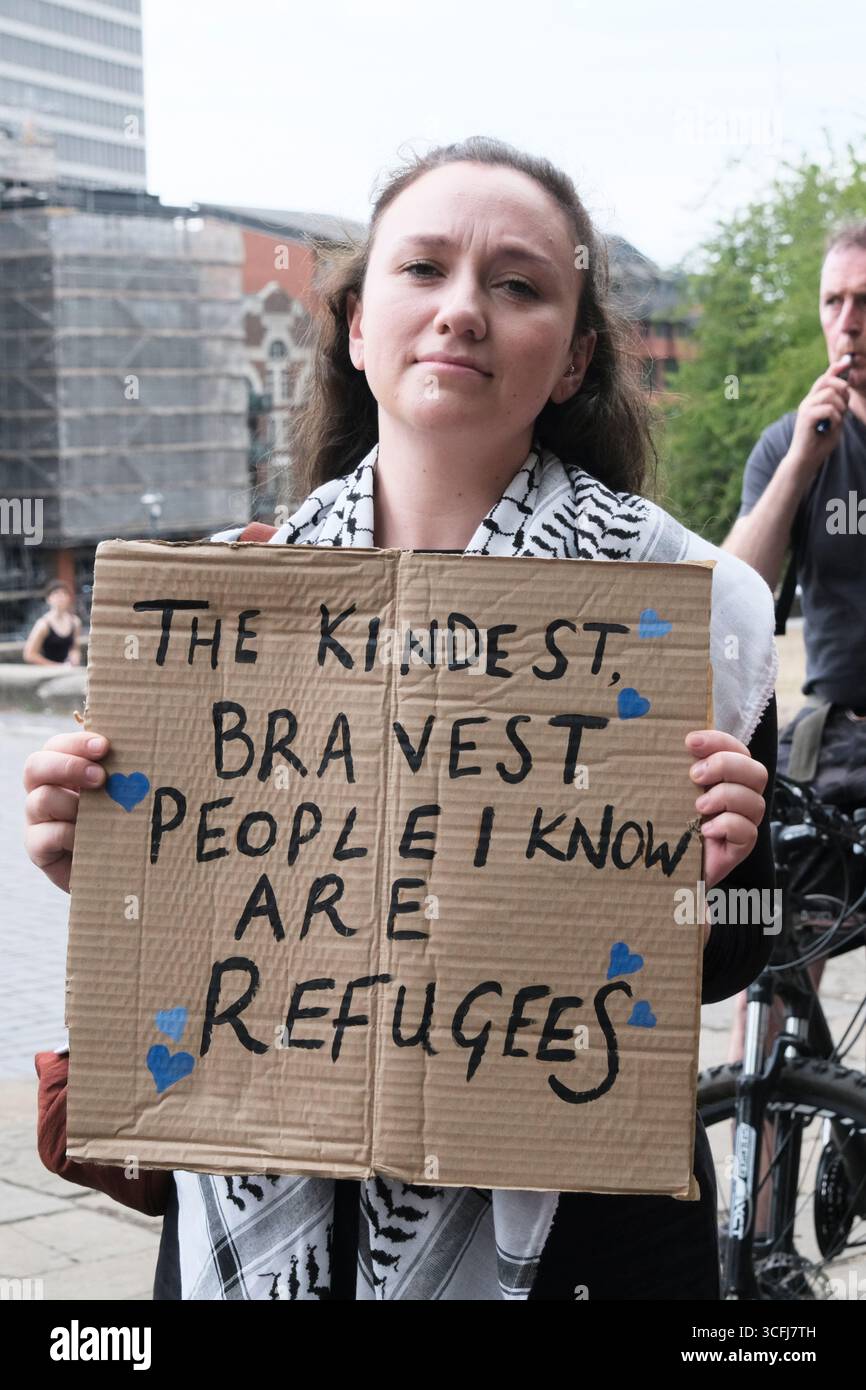 THE KINDEST,
BRAVEST
PEOPLE I KNOW
ARE
REFUGEES
alamy
Image ID: 2CFJ7TH
www.alamy.com